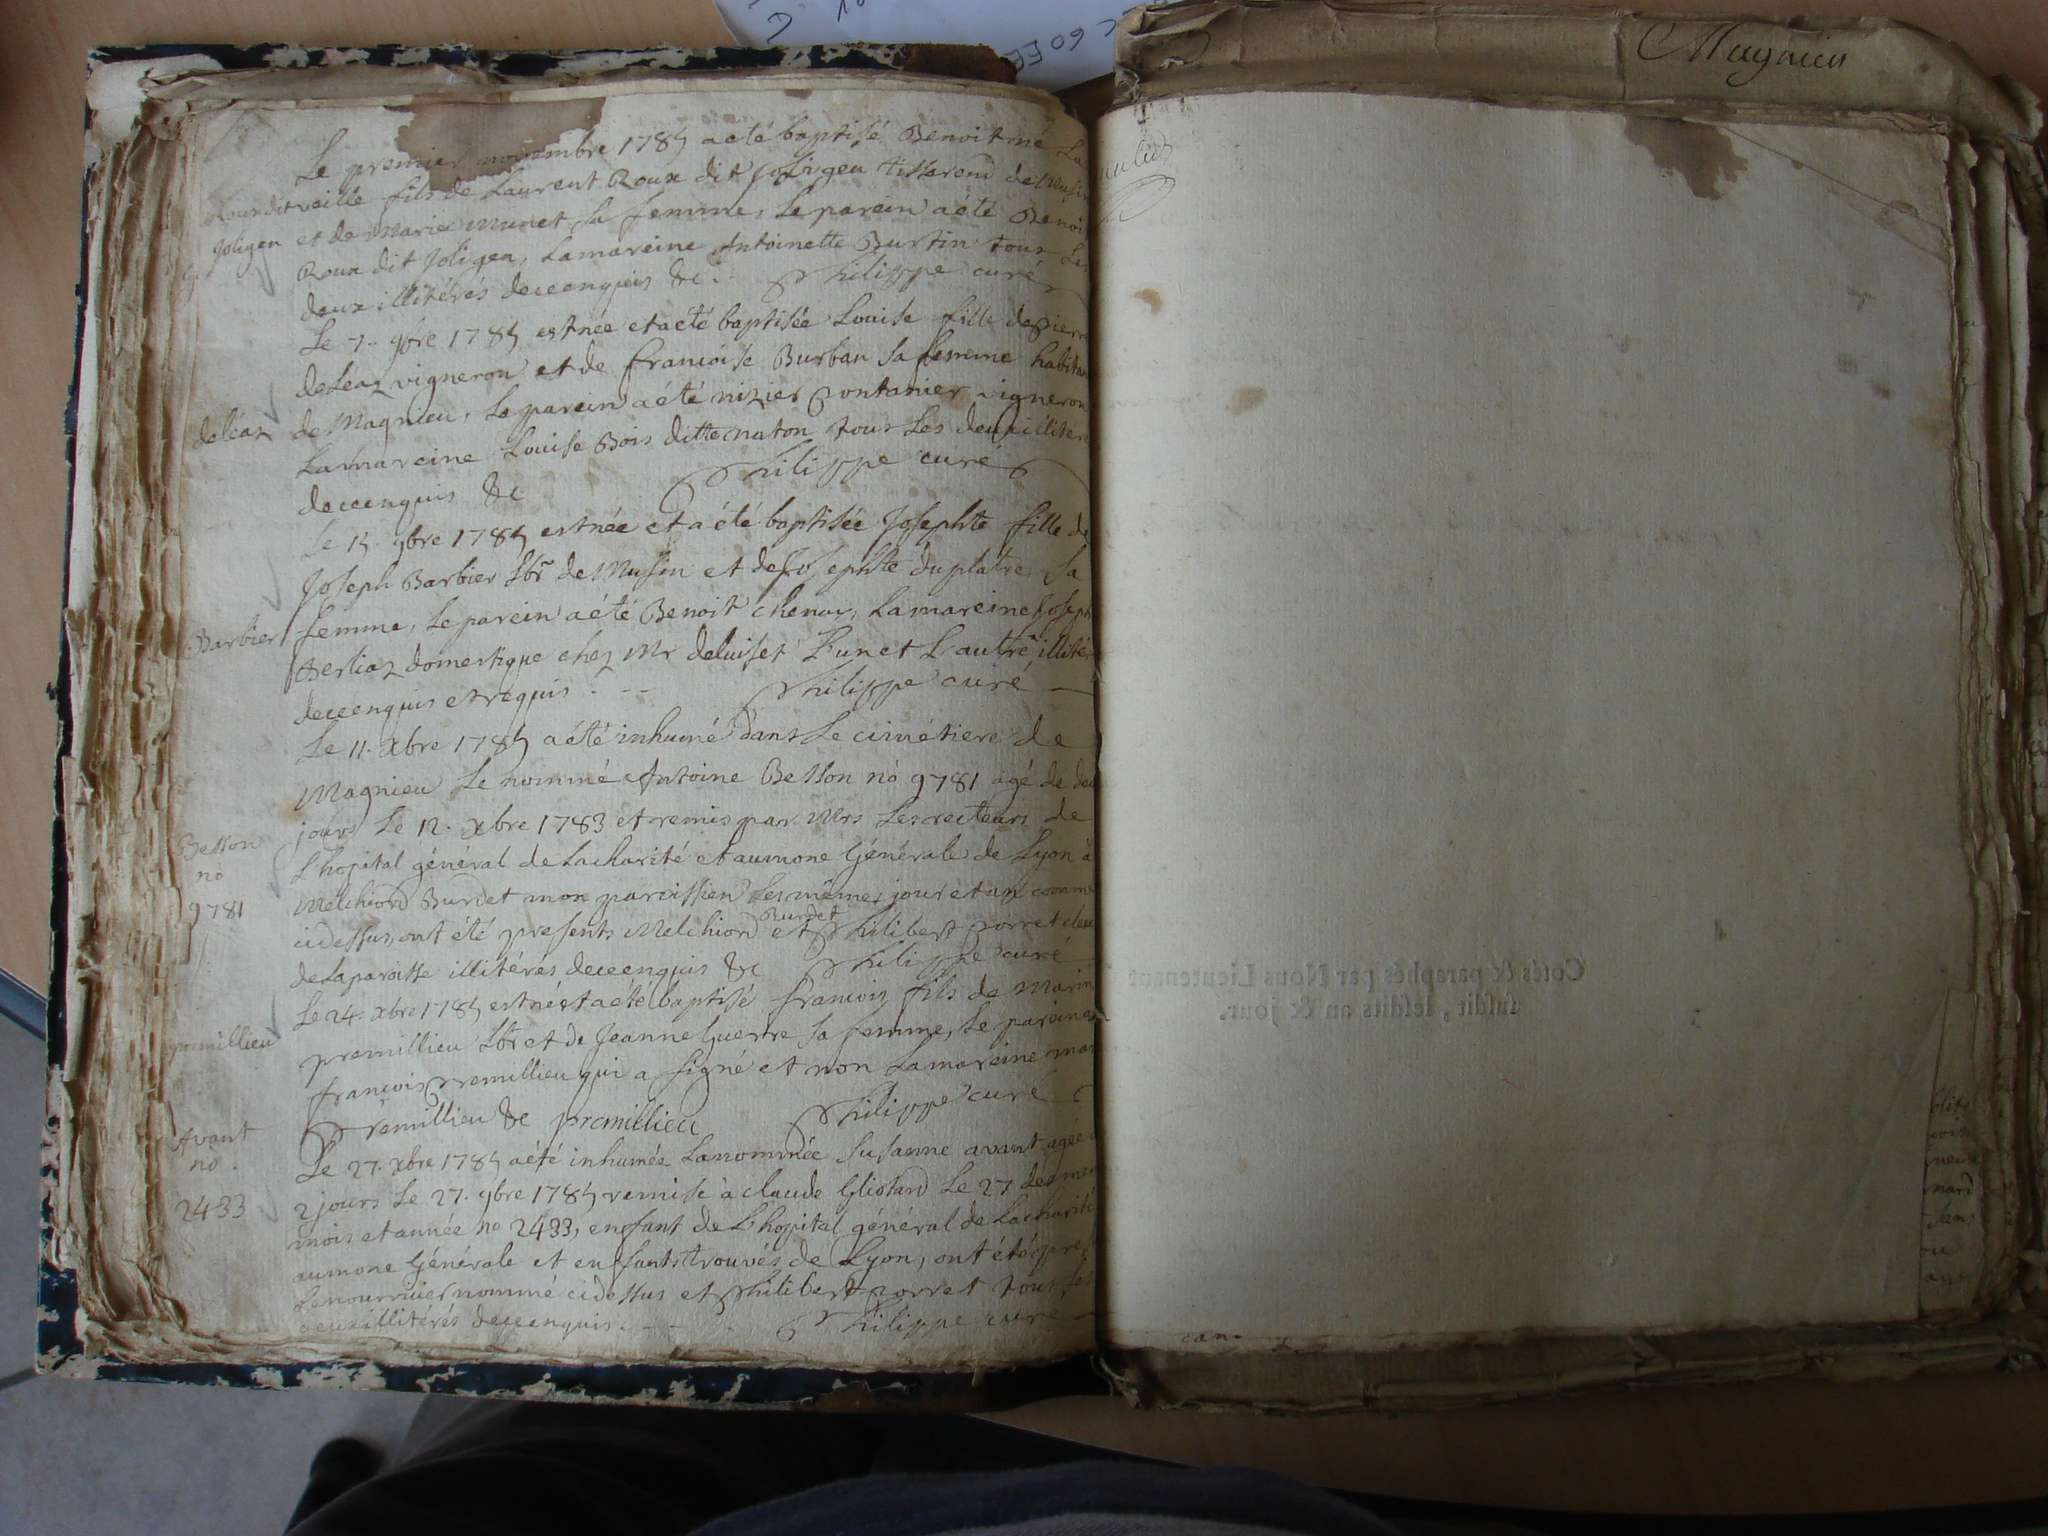 Le premier novembre 1785 a eté baptisé Benoit né La
Roux dit veille fils de Laurent Roux dit Joligen tisserend de Musin
Joligen et de Marie Munet sa femme, Le parein a été Benoit
Roux dit Joligen, La mareine Antoinette Burtin tous Les
deux illitérés de ce enquis &c. Philippe curé
Le 7. 9bre 1785 est née et a eté baptisée Louise fille de Pierre
deLéaz vigneron et de françoise Burban sa femme habitan
deléaz de Magnieu, Le parein a été nizier Pontanier vigneron
La mareine Louise Bois ditte naton tous Les deux illitéré
de ce enquis &c Philippe curé
Le 15. 9bre 1785 est née et a été baptisée Josephte fille de
Joseph Barbier Lbr de Musin et de Josephte duplatre sa
Barbier femme, Le parein a été Benoit chenoz, La mareine Joseph
domestique chez Mr deluiset L'un et L'autre illité
de ce enquis et requis. Philippe curé
Le 11. Xbre 1785 a été inhumé dans Le cimétiere de
Magnieu Le nommé Antoine Besson nò 9781 agé de deu
jours Le 12. xbre 1783 et remis par Mrs Les recteurs de
Besson L'hopital général de La charité et aumone Générale de Lyon à
nò Melchiord Burdet mon paroissien Les mêmes jour et an comme
9781 cidessus, ont été presents Melchiord Burdet et Philibert Porret deux
de La paroisse illitérés de ce enquis &c Philippe curé
Le 24. xbre 1785 est né et a été baptisé françois fils de Marin
premillieu premillieu Lbr et de Jeanne Guerre sa femme, Le parein
françois Premillieu qui a signé et non La mareine mar
Premillieu &c premillieu Philippe curé
Avant Le 27. xbre 1785 a été inhumée La nommée Susanne avant agée
no. 2 jours Le 27. 9bre 1785 remise à claude Gliotard Le 27 des mem
2433 mois et année no 2433, enfant de L'hopital général de La charité
aumone Générale et enfants trouvés de Lyon, ont été pres
Le nourricier nommé cidessus et Philibert Porret tous Les
deux illitérés de ce enquis. Philippe curé
Magnieu
Cotés & paraphés par Nous Lieutenant
susdit, lesdits an & jour.